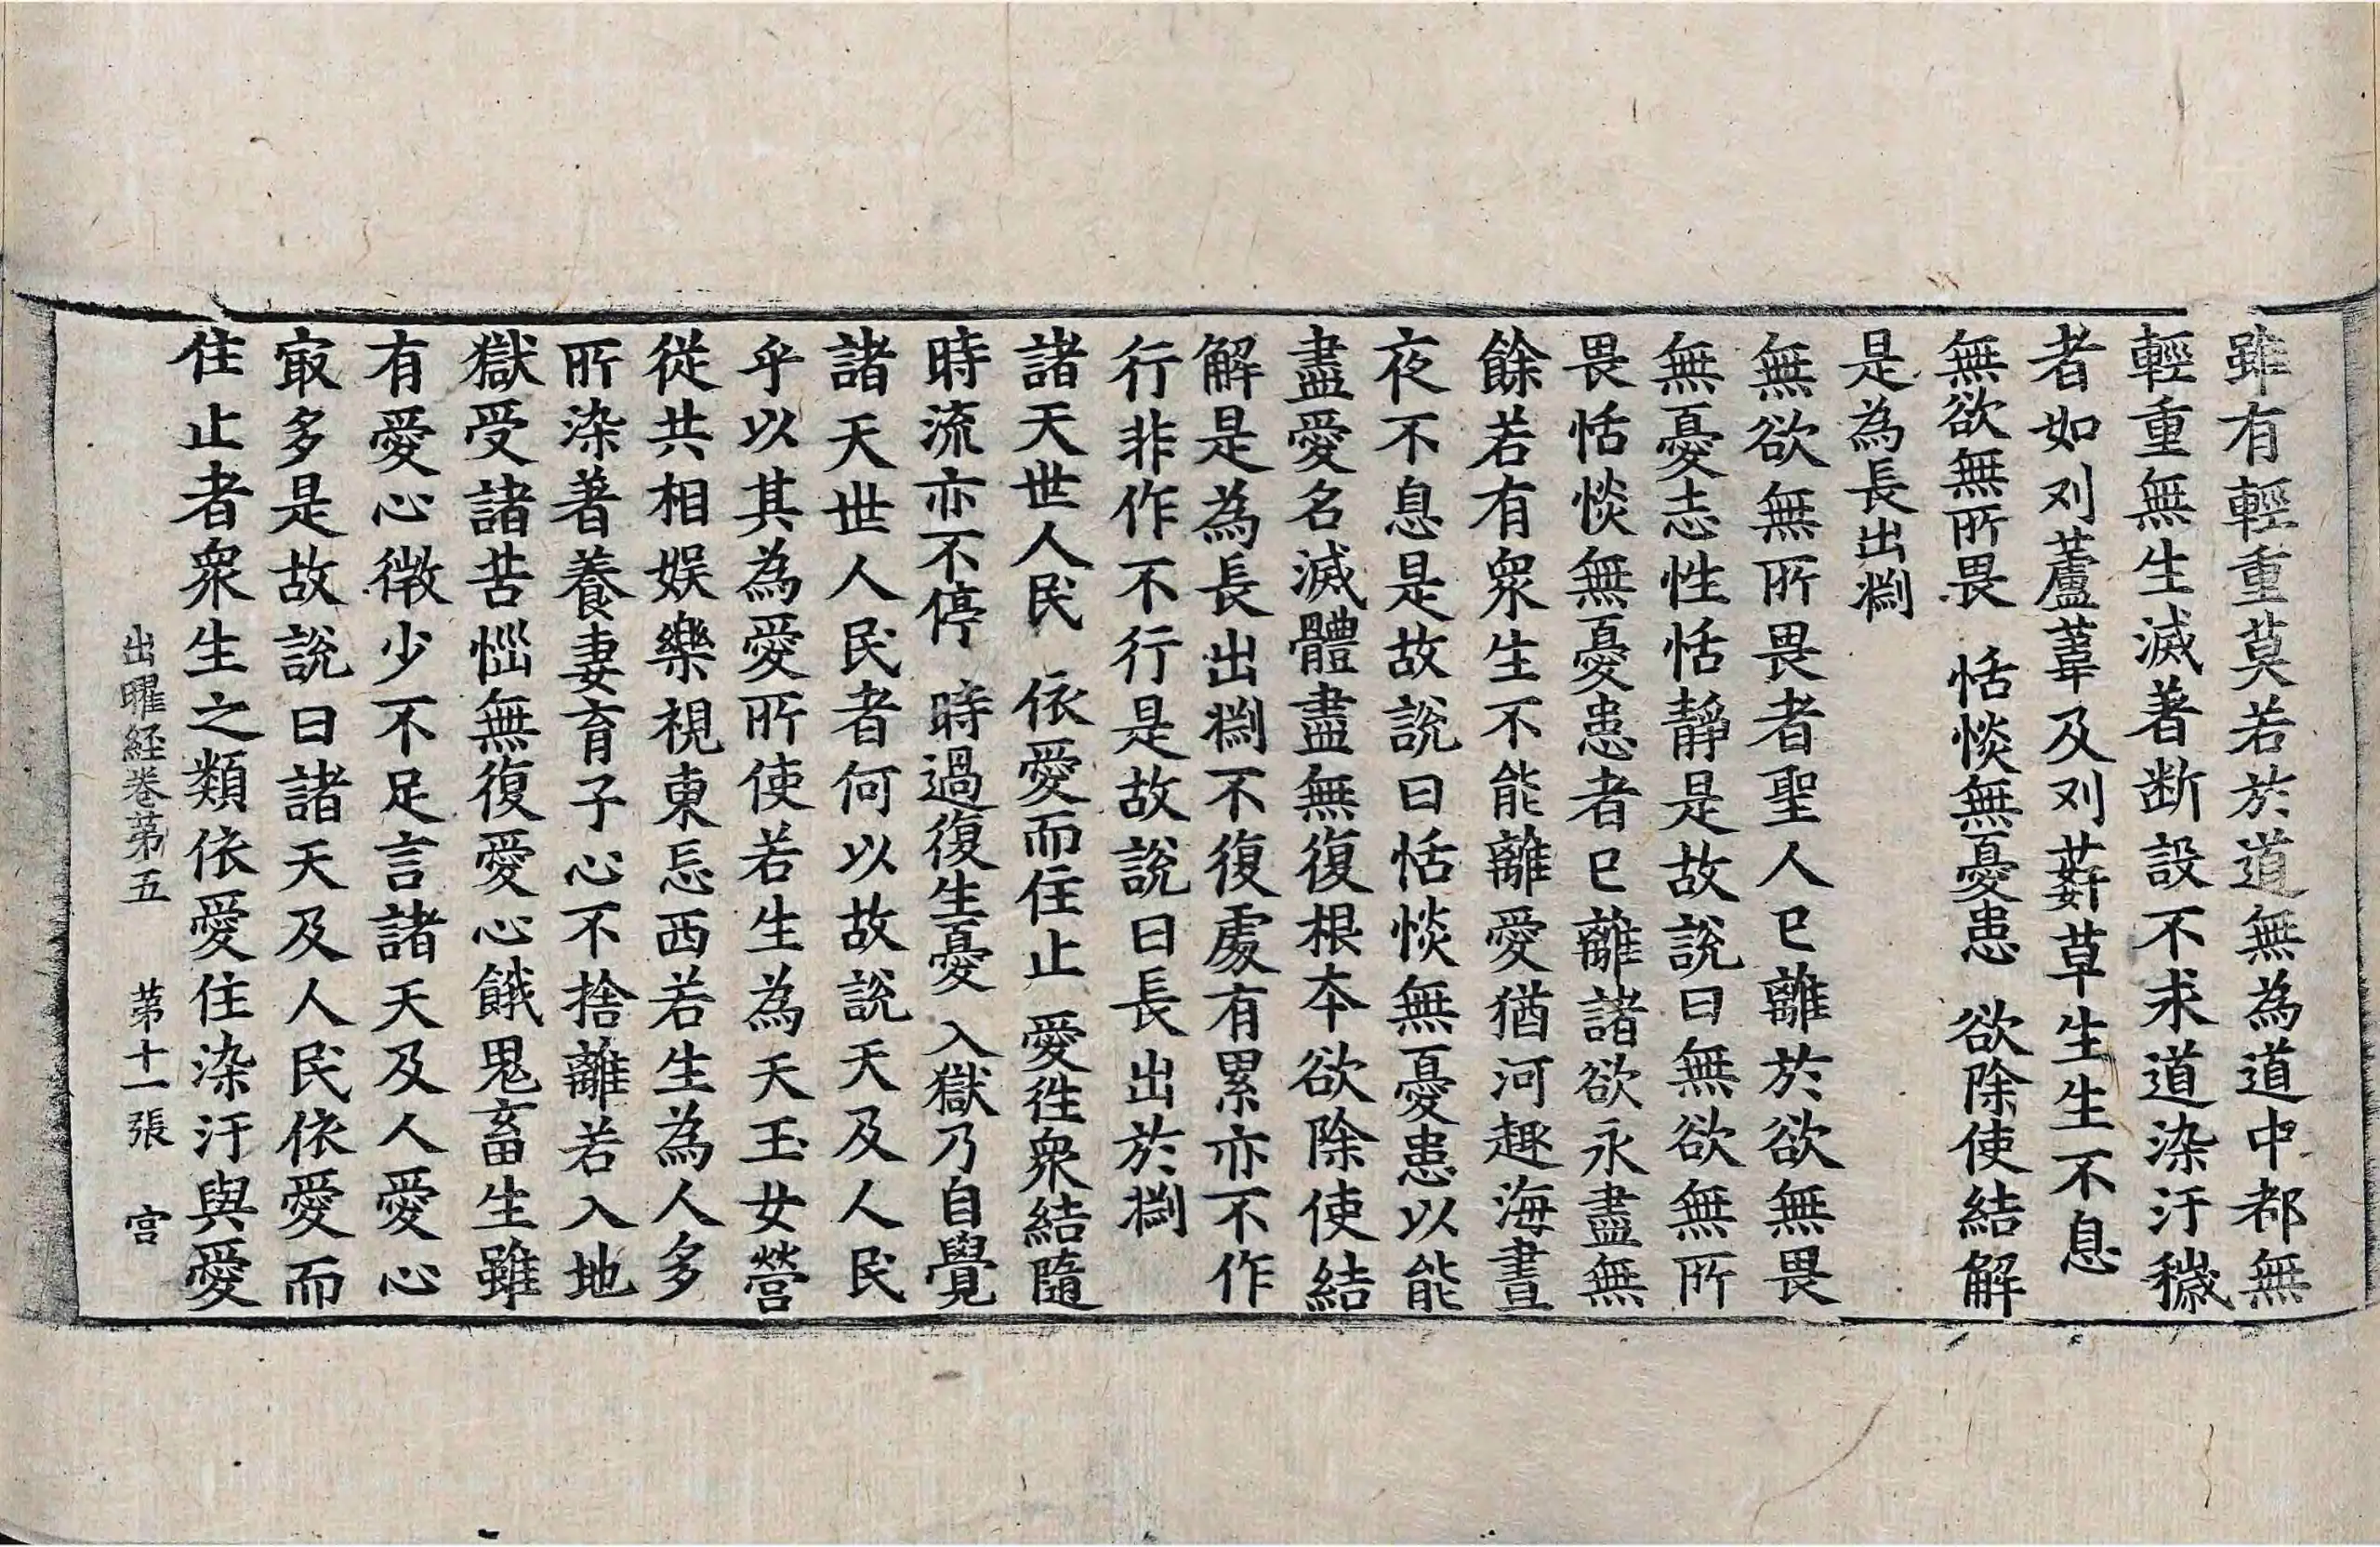 雖有輕重莫若於道無為道中都無
輕重無生滅著断設不求道染汙穢
者如刈蘆葦及刈䔧草生生不息
無欲無所畏　恬惔無憂患　欲除使結解
是為長出㴝
無欲無所畏者聖人已離於欲無畏
無憂志性恬靜是故說曰無欲無所
畏恬惔無憂患者已離諸欲永盡無
餘若有衆生不能離愛猶河趣海晝
夜不息是故說曰恬惔無憂患以能
盡愛名滅體盡無復根本欲除使結
解是為長出㴝不復處有累亦不作
行非作不行是故說曰長出於㴝
諸天世人民　依愛而住止　愛徃衆結隨
時流亦不停　時過復生憂　入獄乃自覺
諸天世人民者何以故說天及人民
乎以其為愛所使若生為天玉女營
從共相娛樂視東忘西若生為人多
所染著養妻育子心不捨離若入地
獄受諸苦惱無復愛心餓鬼畜生雖
有愛心微少不足言諸天及人愛心
㝡多是故說曰諸天及人民依愛而
住止者衆生之類依愛住染汙與愛
出曜経卷苐五　苐十一張　宫